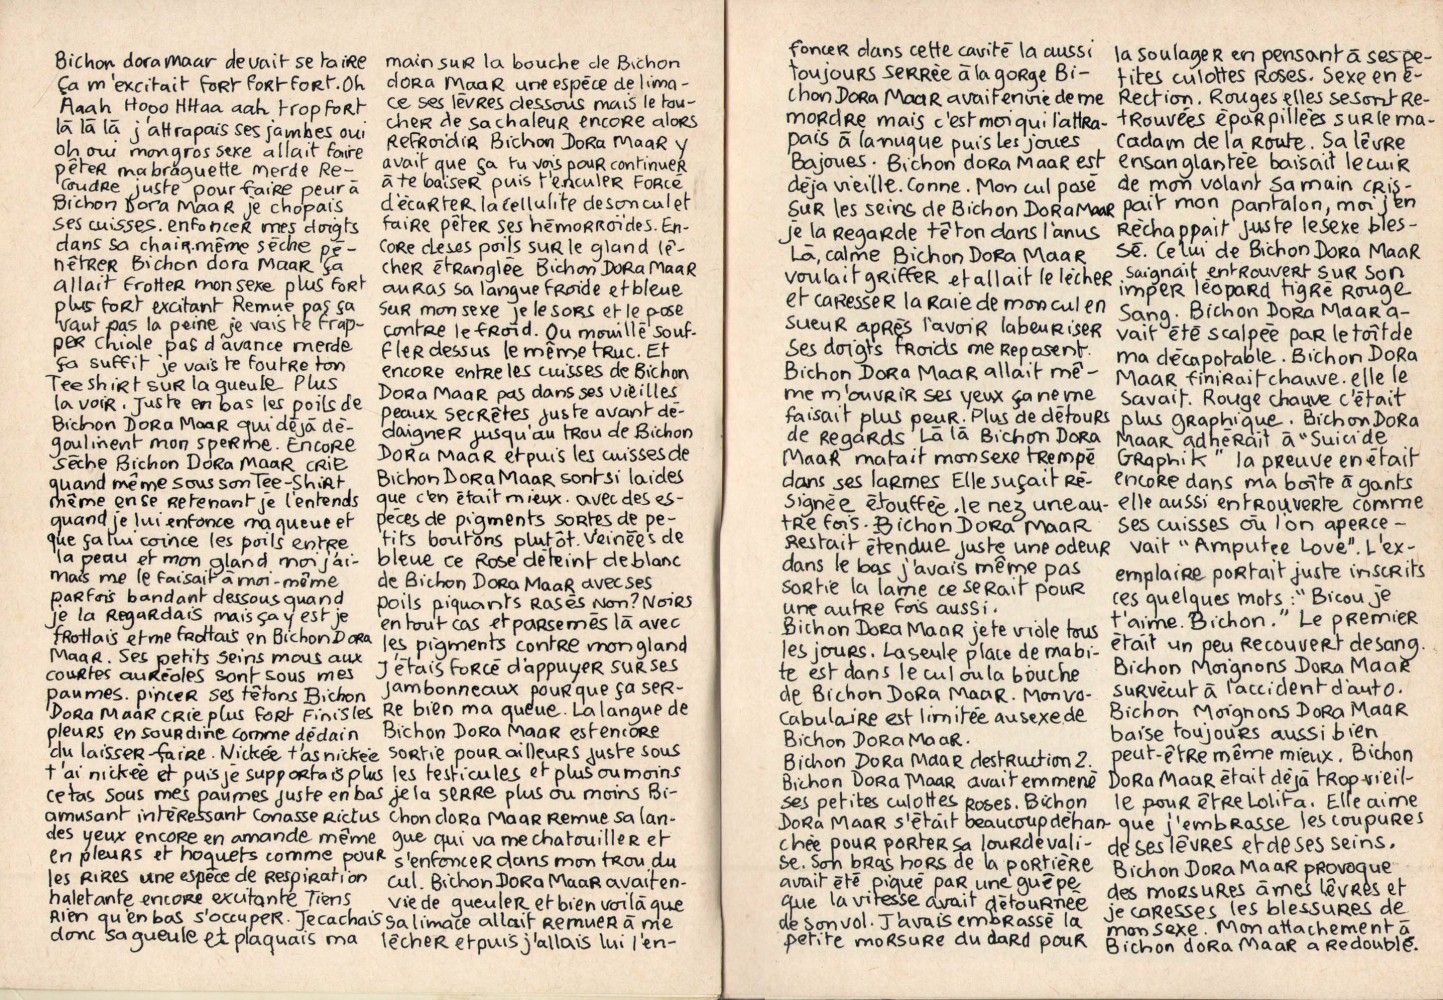 Bichon dora maar devait se taire
ça m'excitait fort fort fort. Oh
Aaah Hooo HHaa aah trop fort
là là là j'attrapais ses jambes oui
oh oui mon gros sexe allait faire
pêter ma braguette merde Re-
coudre juste pour faire peur à
Bichon Dora Maar je chopais
ses cuisses. enfoncer mes doigts
dans sa chair. même sèche pé-
nêtrer Bichon dora Maar ça
allait frotter mon sexe plus fort
plus fort excitant Remue pas ça
vaut pas la peine je vais te frap-
per chiale pas d'avance merde
ça suffit je vais te foutre ton
Tee shirt sur la gueule Plus
la voir. Juste en bas les poils de
Bichon Dora Maar qui déjà dé-
goulinent mon sperme. Encore
sèche Bichon Dora Maar crie
quand même sous son Tee-Shirt
même en se retenant je l'entends
quand je lui enfonce ma queue et
que ça lui coince les poils entre
la peau et mon gland moi j'ai-
mais me le faisait à moi-même
parfois bandant dessous quand
je la regardais mais ça y est je
frottais et me frottais en Bichon Dora
Maar. Ses petits seins mous aux
courtes auréoles sont sous mes
paumes. pincer ses têtons Bichon
Dora Maar crie plus fort Finis les
pleurs en sourdine comme dédain
du laisser-faire. Nickée t'as nickée
t'ai nickée et puis je supportais plus
ce tas sous mes paumes juste en bas
amusant intéressant Conasse Rictus
des yeux encore en amande même
en pleurs et hoquets comme pour
les rires une espèce de respiration
haletante encore excitante Tiens
Rien qu'en bas s'occuper. Je cachais
donc sa gueule et plaquais ma
main sur la bouche de Bichon
dora Maar une espèce de lima-
ce ses lèvres dessous mais le tou-
cher de sa chaleur encore alors
Refroidir Bichon Dora Maar y
avait que ça tu vois pour continuer
à te baiser puis t'enculer Forcé
d'écarter la cellulite de son cul et
faire pêter ses hémorroïdes. En-
core de ses poils sur le gland lé-
cher étranglée Bichon Dora Maar
auras sa langue froide et bleue
sur mon sexe je le sors et le pose
contre le froid. Ou mouillé souf-
fler dessus le même truc. Et
encore entre les cuisses de Bichon
Dora Maar pas dans ses vieilles
peaux secrètes juste avant dé-
daigner jusqu'au trou de Bichon
Dora Maar et puis les cuisses de
Bichon Dora Maar sont si laides
que c'en était mieux. avec des es-
pèces de pigments sortes de pe-
tits boutons plutôt. Veinées de
bleue ce Rose déteint de blanc
de Bichon Dora Maar avec ses
poils piquants rasés non? Noirs
en tout cas et parsemés là avec
les pigments contre mon gland
J'étais forcé d'appuyer sur ses
jambonneaux pour que ça ser-
re bien ma queue. La langue de
Bichon Dora Maar est encore
sortie pour ailleurs juste sous
les testicules et plus ou moins
je la serre plus ou moins Bi-
chon dora Maar Remue sa lan-
gue qui va me chatouiller et
s'enfoncer dans mon trou du
cul. Bichon Dora Maar avait en-
vie de gueuler et bien voilà que
sa limace allait remuer à me
lécher et puis j'allais lui l'en-
foncer dans cette cavité là aussi
toujours serrée à la gorge Bi-
chon Dora Maar avait envie de me
mordre mais c'est moi qui l'attra-
pais à la nuque puis les joues
Bajoues. Bichon dora Maar est
déjà vieille. Conne. Mon cul posé
sur les seins de Bichon Dora Maar
je la regarde têton dans l'anus
Là, calme Bichon Dora Maar
voulait griffer et allait le lécher
et caresser la raie de mon cul en
sueur après l'avoir labeuriser
Ses doigts froids me reposent.
Bichon Dora Maar allait mê-
me m'ouvrir ses yeux ça ne me
faisait plus peur. Plus de détours
de regards Là là Bichon Dora
Maar matait mon sexe trempé
dans ses larmes Elle suçait ré-
signée étouffée. le nez une au-
tre fois. Bichon Dora Maar
restait étendue juste une odeur
dans le bas j'avais même pas
sortie la lame ce serait pour
une autre fois aussi.
Bichon Dora Maar je te viole tous
les jours. La seule place de ma bi-
te est dans le cul ou la bouche
de Bichon Dora Maar. Mon vo-
cabulaire est limitée au sexe de
Bichon Dora Maar.
Bichon Dora Maar destruction 2.
Bichon Dora Maar avait emmené
ses petites culottes roses. Bichon
Dora Maar s'était beaucoup déhan-
chée pour porter sa lourde vali-
se. Son bras hors de la portière
avait été piqué par une guêpe
que la vitesse avait détournée
de son vol. J'avais embrassé la
petite morsure du dard pour
la soulager en pensant à ses pe-
tites culottes Roses. Sexe en é-
rection. Rouges elles se sont re-
trouvées éparpillées sur le ma-
cadam de la route. Sa lèvre
ensanglantée baisait le cuir
de mon volant Sa main cris-
pait mon pantalon, moi j'en
réchappait juste le sexe bles-
sé. Celui de Bichon Dora Maar
saignait entrouvert sur son
imper léopard tigré rouge
Sang. Bichon Dora Maar a-
vait été scalpée par le toit de
ma décapotable. Bichon Dora
Maar finirait chauve. elle le
savait. Rouge chauve c'était
plus graphique. Bichon Dora
Maar adhérait à "Suicide
Graphik" la preuve en était
encore dans ma boîte à gants
elle aussi entrouverte comme
ses cuisses où l'on aperce-
vait "Amputee Love". L'ex-
emplaire portait juste inscrits
ces quelques mots : "Bicou je
t'aime. Bichon." Le premier
était un peu recouvert de sang.
Bichon Moignons Dora Maar
survécut à l'accident d'auto.
Bichon Moignons Dora Maar
baise toujours aussi bien
peut-être même mieux. Bichon
Dora Maar était déjà trop vieil-
le pour être Lolita. Elle aime
que j'embrasse les coupures
de ses lèvres et de ses seins.
Bichon Dora Maar provoque
des morsures à mes lèvres et
je caresses les blessures de
mon sexe. Mon attachement à
Bichon dora Maar a redoublé.